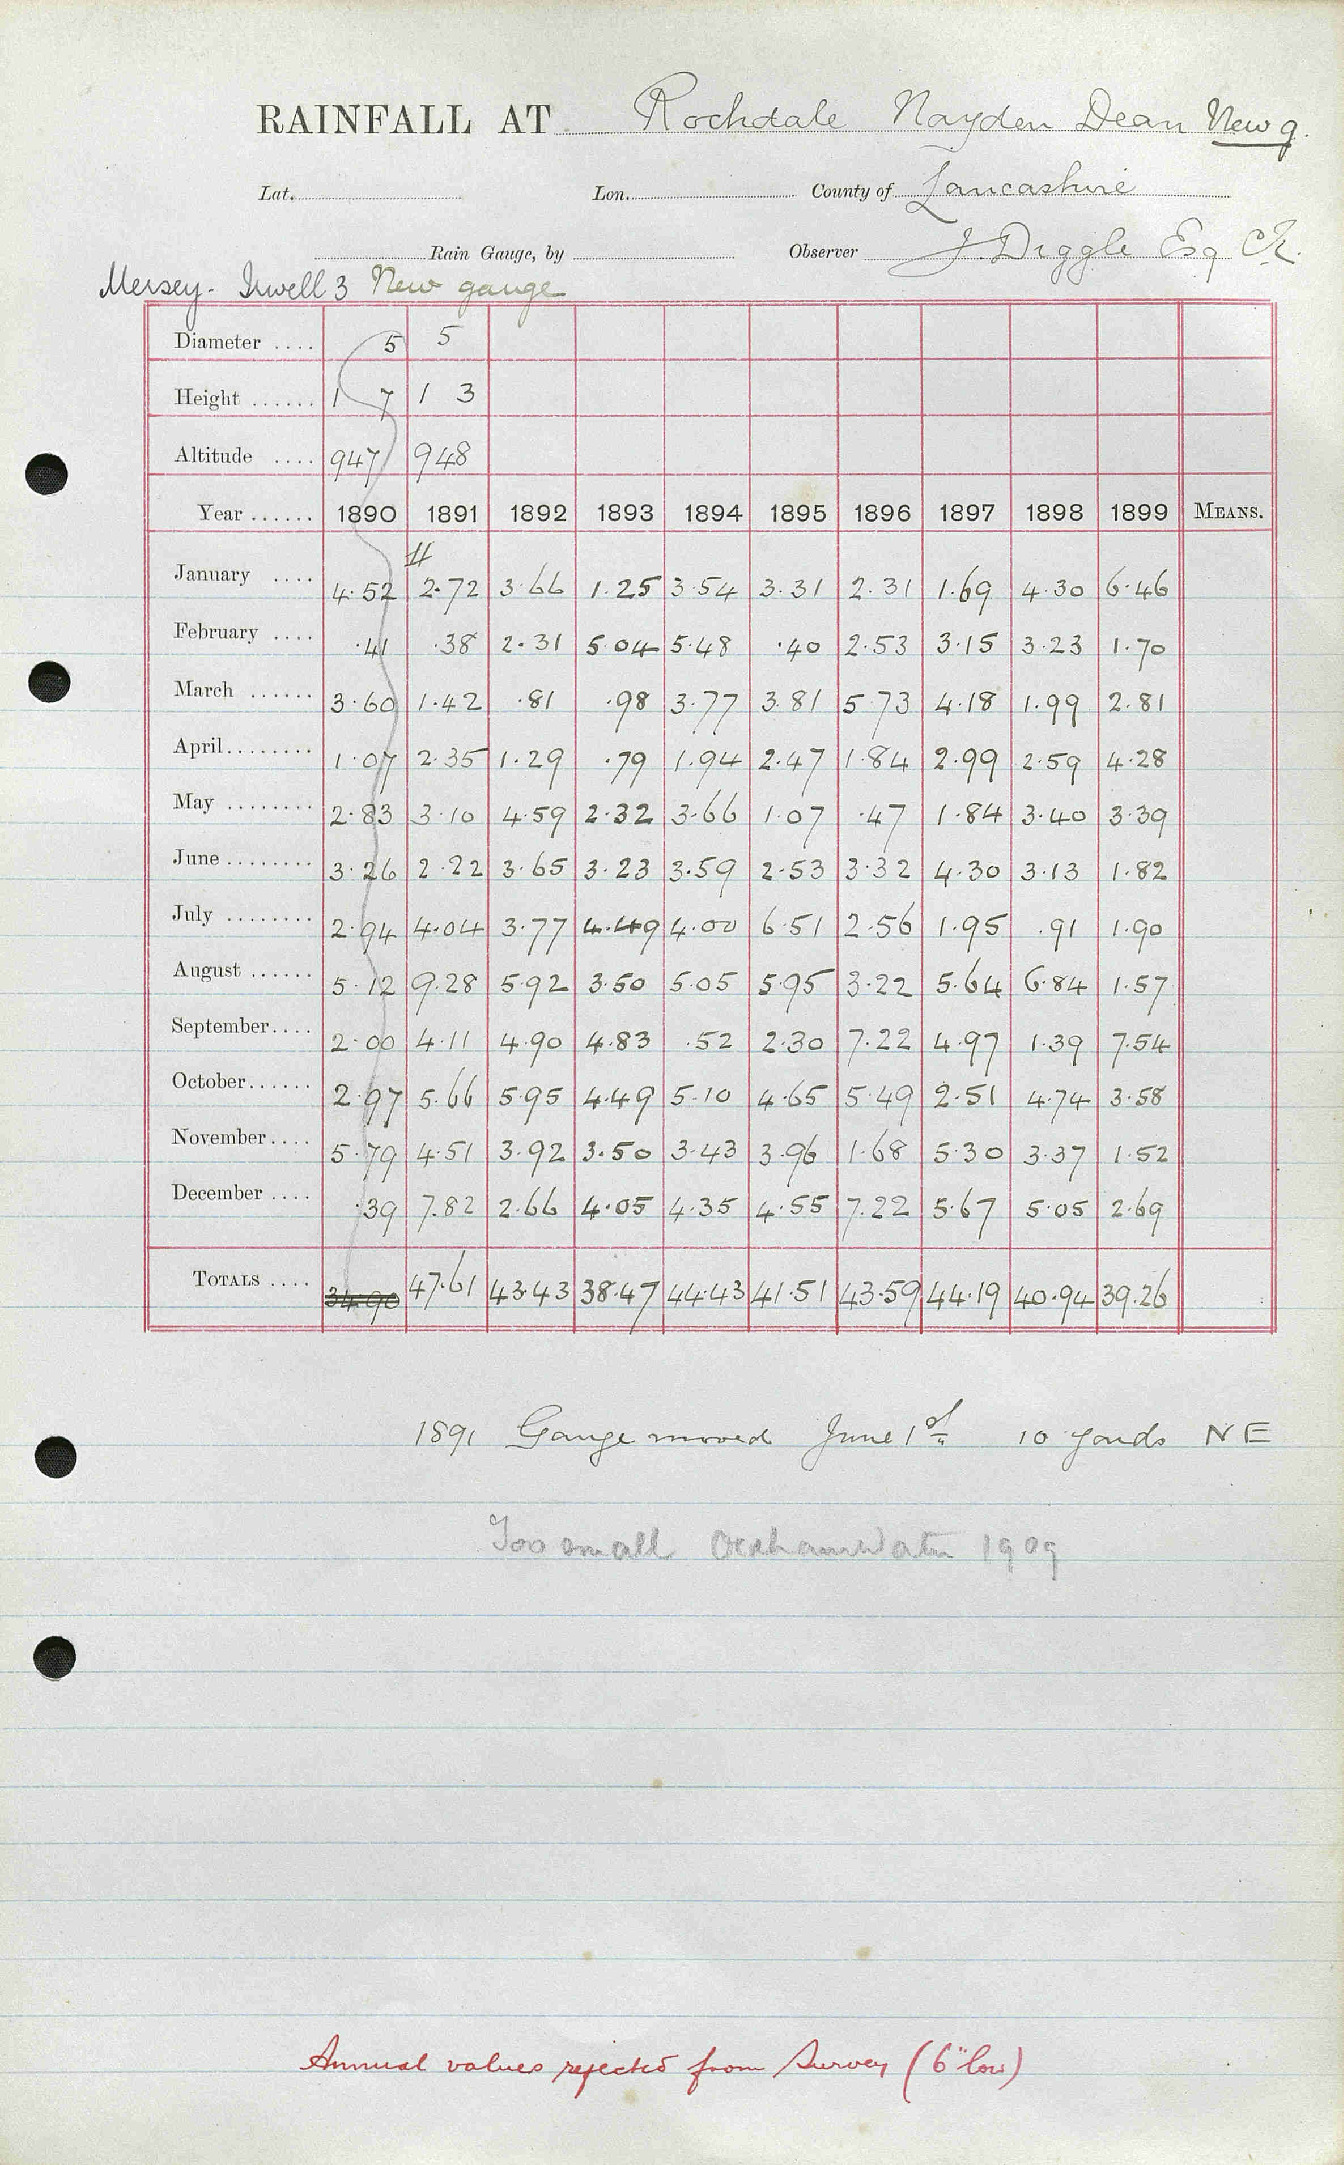 RAINFALL AT Rochdale Nayden Dean New g.
Lat. Lon. County of Lancashire
Rain Gauge, by Observer J. Diggle Esq CE.
Mersey. Irwell 3 New gauge
Diameter .... 5 5
Height ...... 1 7 1 3
Altitude .... 947 948
Year ...... 1890 1891 1892 1893 1894 1895 1896 1897 1898 1899 MEANS.
January .... 4.52 2.72 3.66 1.25 3.54 3.31 2.31 1.69 4.30 6.46
February .... .41 .38 2.31 5.04 5.48 .40 2.53 3.15 3.23 1.70
March ...... 3.60 1.42 .81 .98 3.77 3.81 5.73 4.18 1.99 2.81
April........ 1.07 2.35 1.29 .79 1.94 2.47 1.84 2.99 2.59 4.28
May ........ 2.83 3.10 4.59 2.32 3.66 1.07 .47 1.84 3.40 3.39
June ........ 3.26 2.22 3.65 3.23 3.59 2.53 3.32 4.30 3.13 1.82
July ........ 2.94 4.04 3.77 4.49 4.00 6.51 2.56 1.95 .91 1.90
August ...... 5.12 9.28 5.92 3.50 5.05 5.95 3.22 5.64 6.84 1.57
September.... 2.00 4.11 4.90 4.83 .52 2.30 7.22 4.97 1.39 7.54
October...... 2.97 5.66 5.95 4.49 5.10 4.65 5.49 2.51 4.74 3.58
November.... 5.79 4.51 3.92 3.50 3.43 3.96 1.68 5.30 3.37 1.52
December .... .39 7.82 2.66 4.05 4.35 4.55 7.22 5.67 5.05 2.69
TOTALS .... 34.90 47.61 43.43 38.47 44.43 41.51 43.59 44.19 40.94 39.26
1891 Gauge moved June 1st 10 yards NE
Too small 1909
Annual values rejected from Survey (6" low)